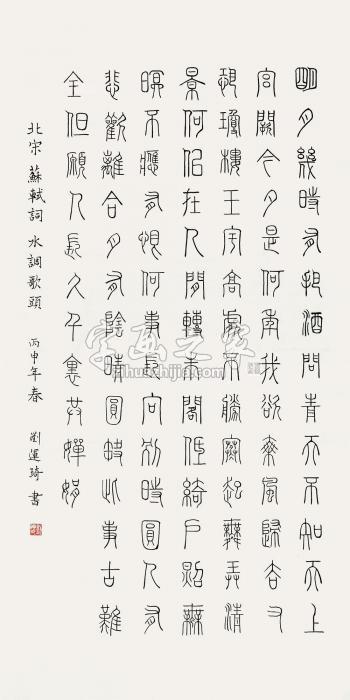 明月幾時有把酒問青天不知天上
宮闕今夕是何年我欲乘風歸去又
恐瓊樓玉宇高處不勝寒起舞弄清
影何似在人間轉朱閣低綺戶照無
眠不應有恨何事長向別時圓人有
悲歡離合月有陰晴圓缺此事古難
全但願人長久千裏共嬋娟
北宋 蘇軾詞 水調歌頭 丙申年春 劉運琦書
字画之家